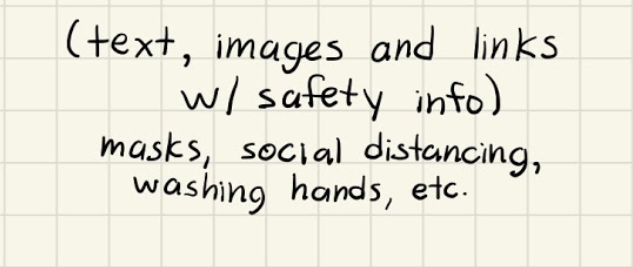 (text, images and links
w/ safety info)
masks, social distancing,
washing hands, etc.